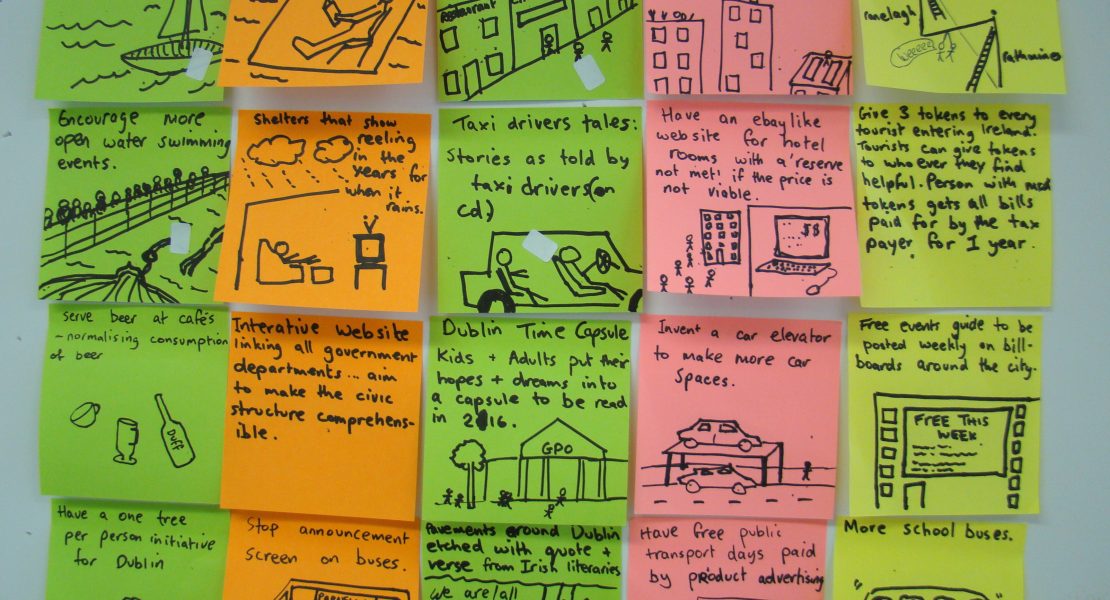 Restaurant
ranelagh
beeeez
rathmines
Encourage more
open water swimming
events.
Shelters that show
reeling
in the
years for
when it
rains.
Taxi drivers tales:
Stories as told by
taxi drivers (on
cd)
Have an ebay like
website for hotel
rooms with a 'reserve
not met' if the price is
not viable.
$$
Give 3 tokens to every
tourist entering Ireland.
Tourists can give tokens
to who ever they find
helpful. Person with most
tokens gets all bills
paid for by the tax
payer for 1 year.
serve beer at cafés
- normalising consumption
of beer
Duff
Interative website
linking all government
departments... aim
to make the civic
structure comprehens-
ible.
Dublin Time Capsule
Kids + Adults put their
hopes + dreams into
a capsule to be read
in 2016.
GPO
Invent a car elevator
to make more car
Spaces.
Free events guide to be
posted weekly on bill-
boards around the city.
FREE THIS
WEEK
Have a one tree
per person initiative
for Dublin
Stop announcement
screen on buses.
Pavements around Dublin
etched with quote +
verse from Irish literaries
we are/all
Have free public
transport days paid
by product advertising
More school buses.